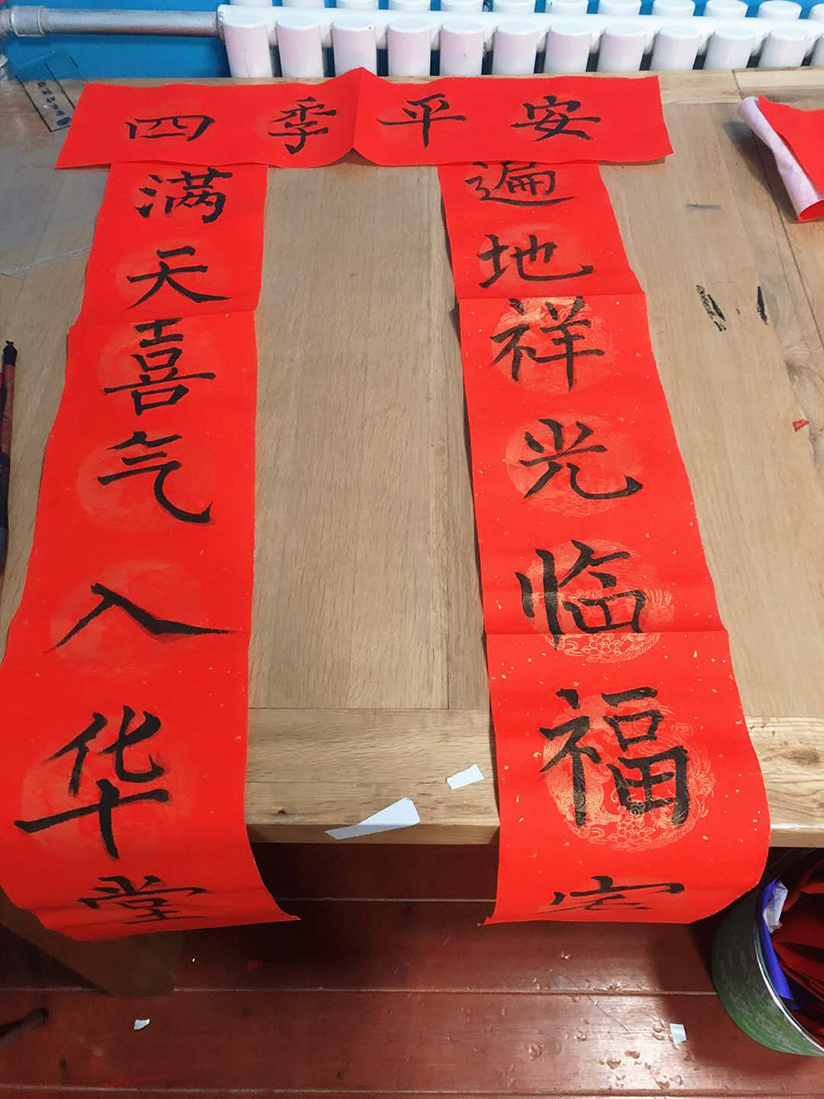 四季平安
满天喜气入华堂
遍地祥光临福宅